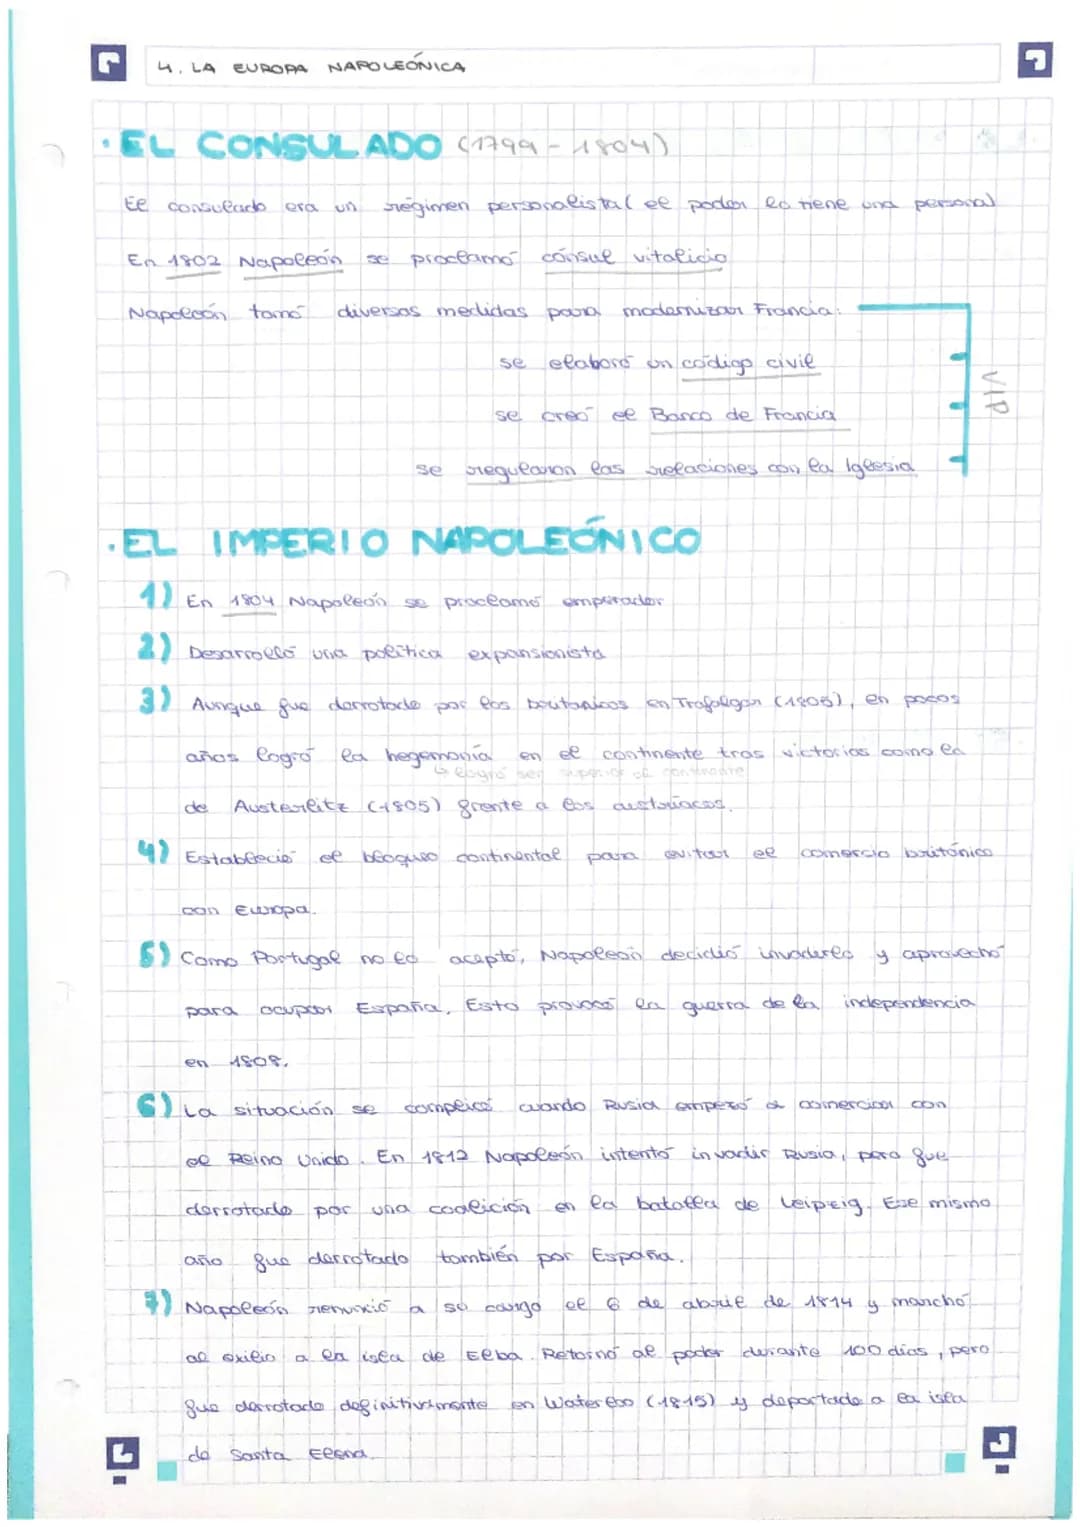 4. LA EUROPA NAPOLEÓNICA
· EL CONSULADO (1799 - 1804)
El consulado era un régimen personalista (el poder lo tiene una persona)
En 1802 Napoleón se proclamó cónsul vitalicio
Napoleón tomó diversas medidas para modernizar Francia:
se elaboró un código civil
se creó el Banco de Francia
se regularon las relaciones con la Iglesia
VIP
· EL IMPERIO NAPOLEÓNICO
1) En 1804 Napoleón se proclamó emperador
2) Desarrolló una política expansionista
3) Aunque fue derrotado por los britanicos en Trafalgar (1805), en pocos
años logró la hegemonía en el continente tras victorias como la
↳ logró ser superior al continente
de Austerlitz (1805) frente a los austríacos.
4) Estableció el bloqueo continental para evitar el comercio británico
con Europa.
5) Como Portugal no lo aceptó, Napoleón decidió invadirlo y aprovechó
para ocupar España. Esto provocó la guerra de la independencia
en 1808.
6) La situación se complicó cuando Rusia empezó a comerciar con
el Reino Unido. En 1812 Napoleón intentó invadir Rusia, pero fue
derrotado por una coalición en la batalla de Leipzig. Ese mismo
año fue derrotado también por España.
7) Napoleón renunció a su cargo el 6 de abril de 1814 y marchó
al exilio a la isla de Elba. Retornó al poder durante 100 días, pero
fue derrotado definitivamente en Waterloo (1815) y deportado a la isla
de Santa Elena.